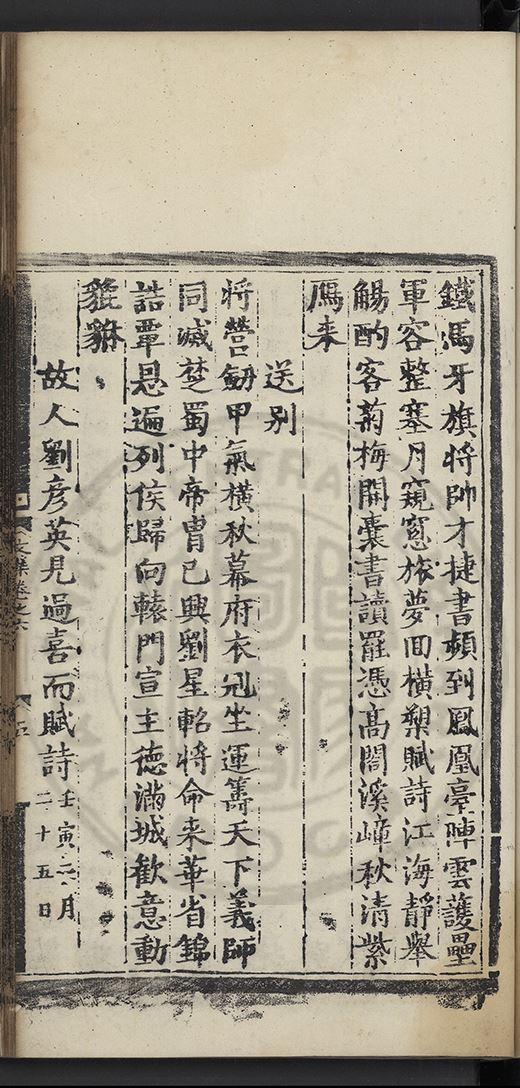 鐵馬牙旗將帥才捷書頻到鳳凰臺陣雲護壘
軍容整塞月窺窓旅夢回橫槊賦詩江海靜舉
觴酌客菊梅開囊書讀罷憑高閣溪嶂秋清紫
鴈来
送别
將營劒甲氣橫秋幕府衣冠坐運籌天下義師
同滅楚蜀中帝胄已興劉星軺將命来華省錦
誥覃恩遍列侯歸向轅門宣主德滿城歡意動
貔貅
故人劉彦英見過喜而賦詩壬寅六月二十五日
集卷之六